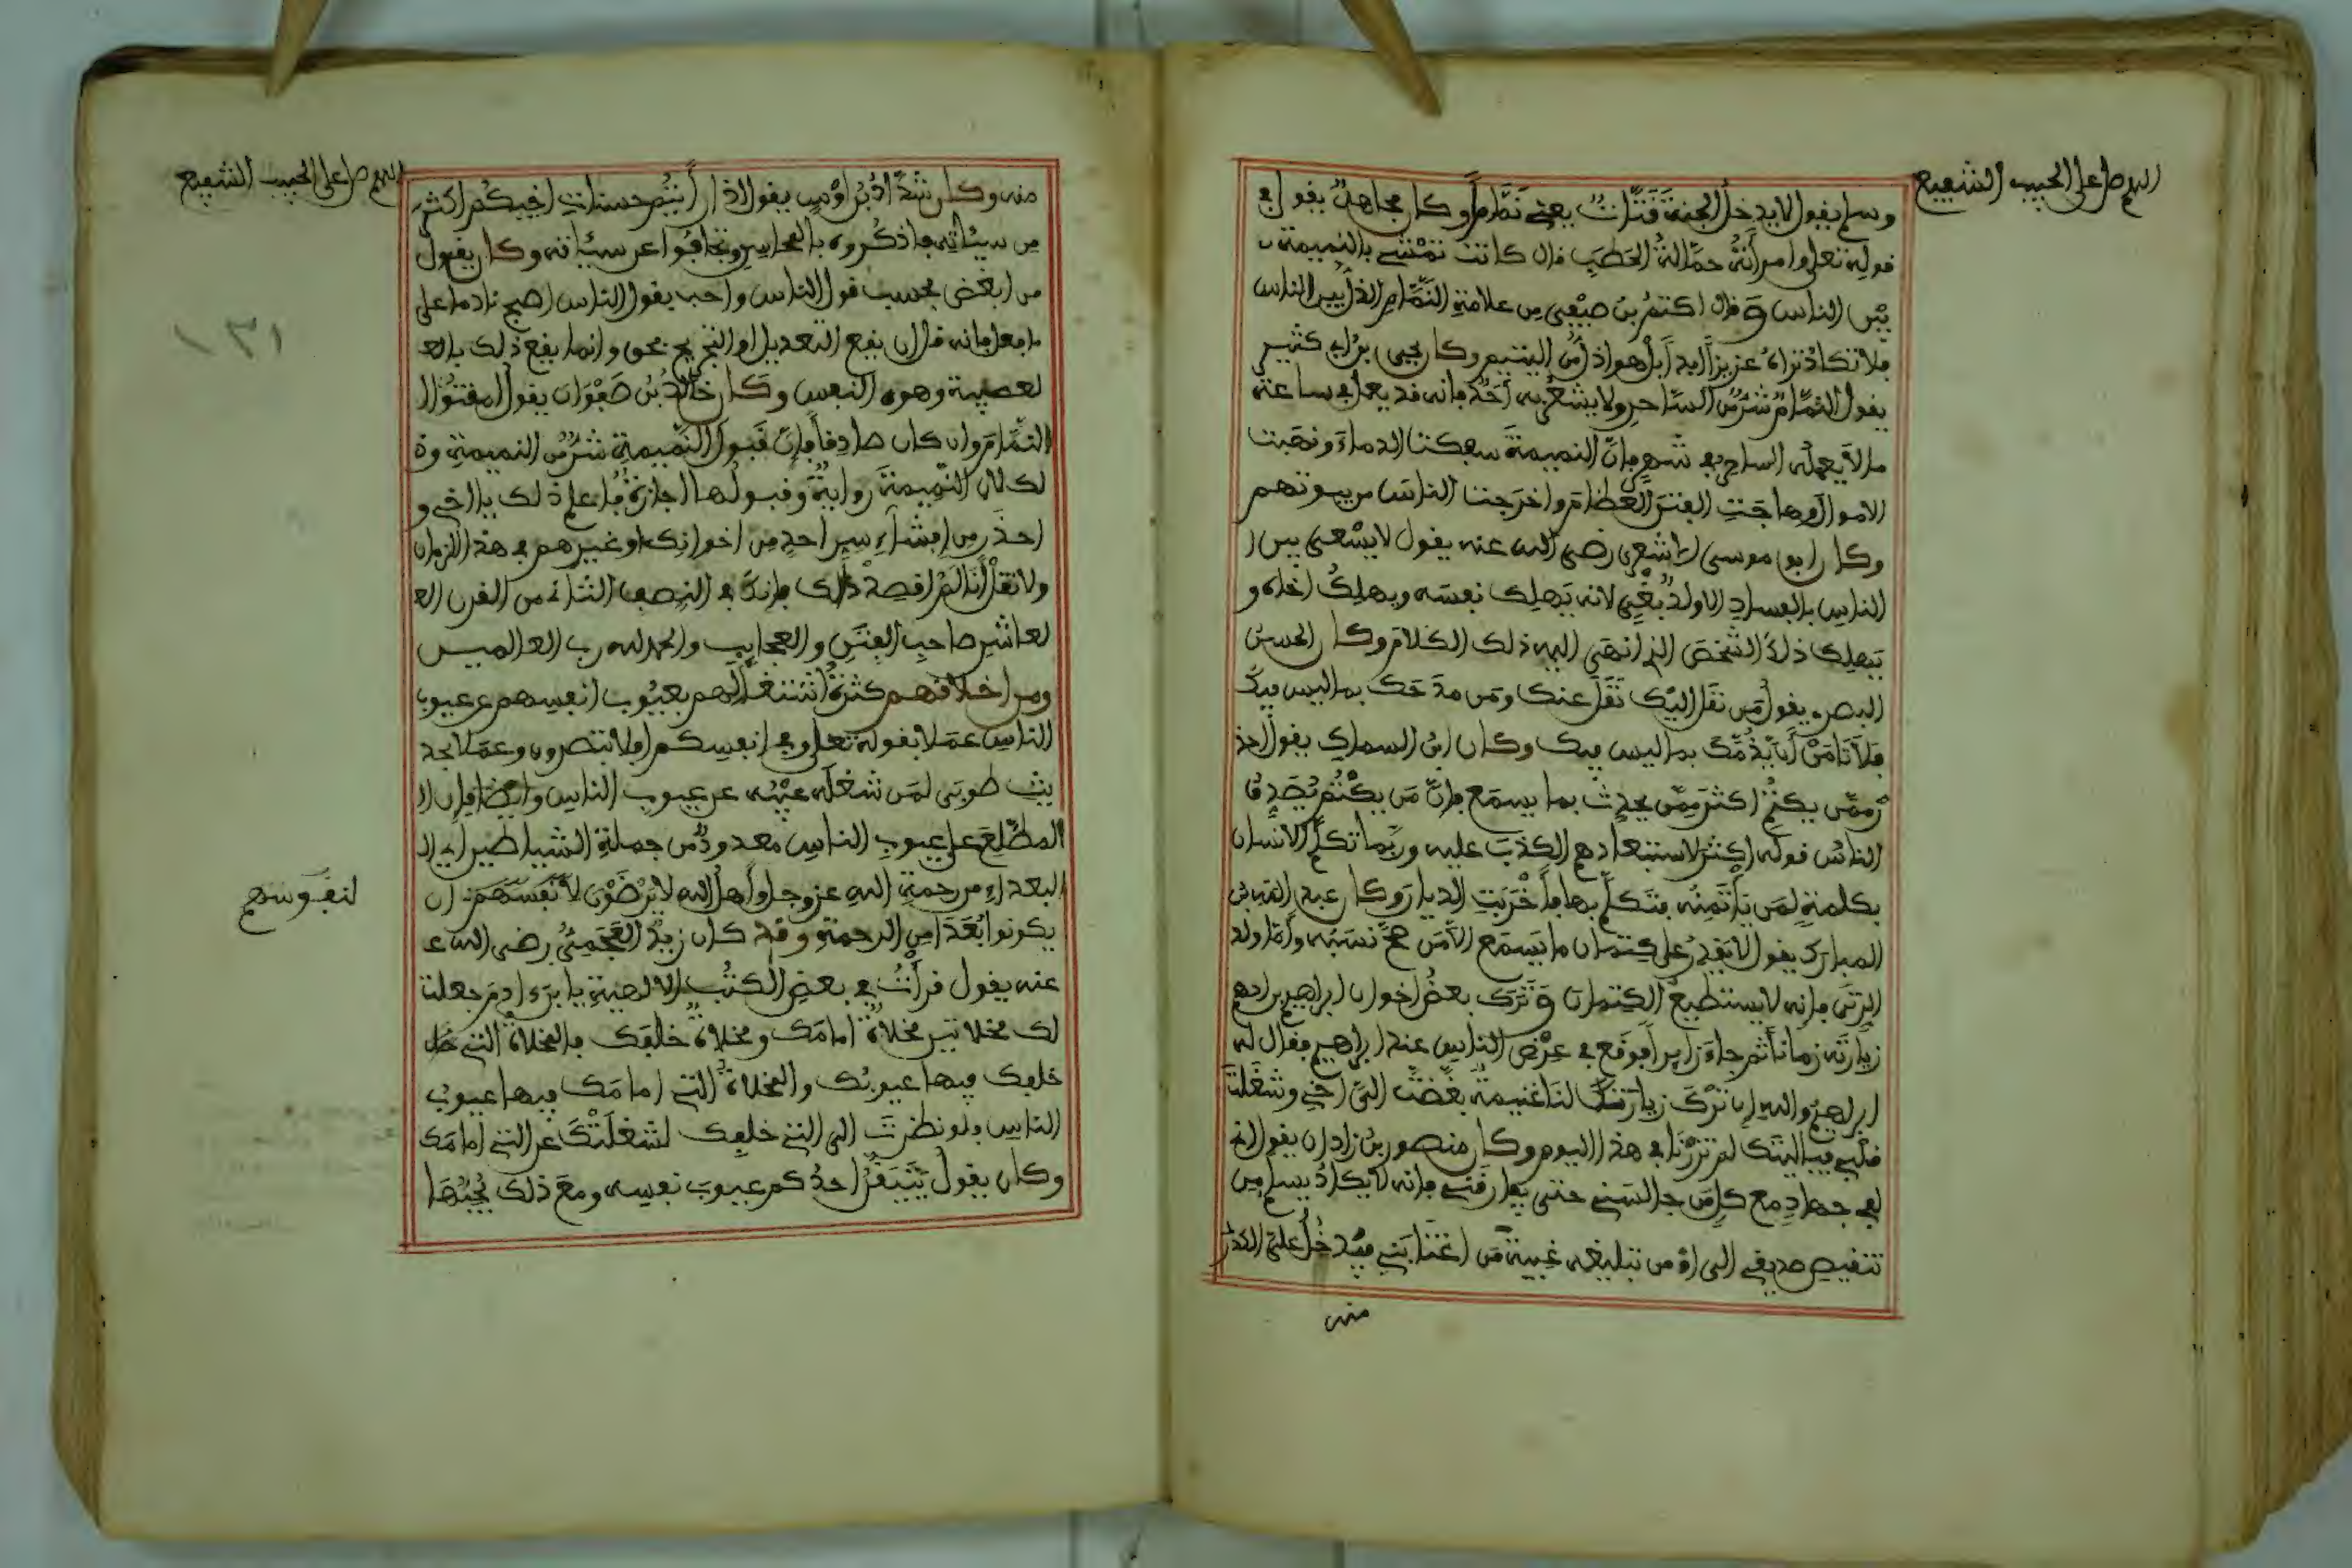 اللهم صل على الحبيب الشفيع
وسلم يقول لا يدخل الجنة قتات يعني نمام وكان مجاهد يقول في
قوله تعلى وامرأته حمالة الحطب قال كانت تمشي بالنميمة
بين الناس وقال اكتم بن صيفي من علامة النمام الذل بين الناس
فلا تكاد تراه عزيزا ابدا بل هو اذل من اليتيم وكان يحيى بن ابي كثير
يقول النمام شر من الساحر ولا يشعر به أحد فانه قد يعمل في ساعة
ما لا يعمله الساحر في شهر فإن النميمة سفكت الدماء ونهبت
الاموال وهاجت الفتن العظام واخرجت الناس من بيوتهم
وكان ابو موسى الاشعري رضي الله عنه يقول لا يسعى بين ا
الناس بالفساد الا ولد بغي لانه يهلك نفسه ويهلك اخاه و
يهلك ذلك الشخص الذي انهى اليه ذلك الكلام وكان الحسن
البصري يقول من نقل اليك نقل عنك ومن مدحك بما ليس فيك
فلا تامن أن يذمك بما ليس فيك وكان ابن السماك يقول احذ
ر ممن يكتم اكثر ممن يحدث بما يسمع فإن من يكتم يصدق
الناس قوله اكثر لاستبعادهم الكذب عليه وربما تكلم الانسان
بكلمة لمن يأتمنه فتكلم بها فأخربت الديار وكان عبد الله بن
المبارك يقول لا يقدر على كتمان ما يسمع الا من صح نسبه وأما ولد
الزنى فإنه لا يستطيع الكتمان وترك بعض اخوان ابراهيم بن ادهم
زيارته زمانا ثم جاء زايرا فوقع في عرض الناس عند ابراهيم فقال له
ابراهيم والله ان ترك زيارتك لنا غنيمة بغضت الي اخي وشغلت
قلبي فيا ليتك لم تزرنا في هذا اليوم وكان منصور بن زادان يقول اني
لفي جهاد مع كل من جالسني حتى يفارقني فإنه لا يكاد يسلم من
تنقيص صديقي الي او من تبليغه غيبة من اغتابني فيدخل علي الكدر
منه
اللهم صل على الحبيب الشفيع
منه وكان شداد بن اوس يقول اذا رأيتم حسنات اخيكم اكثر
من سيئاته فاذكروه بالمحاسن وتجافوا عن سيئاته وكان يقول
من ابغض بحسب قول الناس واحب بقول الناس اصبح نادما على
ما فعل فانه قل ان يقع التعديل او التجريح بحق وانما يقع ذلك بالع
لعصبية وهوى النفس وكان خالد بن صفوان يقول امقتوا ا
النمام وان كان صادقا فإن قبول النميمة شر من النميمة وذ
لك لان النميمة رواية وقبولها اجازة فاعلم ذلك يا اخي و
احذر من افشاء سر احد من اخوانك او غيرهم في هذا الزمان
ولا تقل انا لم اقصد ذلك فإنك في النصف الثاني من القرن الع
لعاشر صاحب الفتن والعجايب والحمد لله رب العالمين
ومن اخلاقهم كثرة اشتغالهم بعيوب انفسهم عن عيوب
الناس عملا بقوله تعلى وفي انفسكم افلا تبصرون وعملا بحد
يث طوبى لمن شغله عيبه عن عيوب الناس وايضا فإن ا
المطلع على عيوب الناس معدود من جملة الشياطين اي ال
البعداء من رحمة الله عز وجل وأهل الله لا يرضون لانفسهم ان
لنفوسهم
يكونوا بعداء من الرحمة وقد كان زيد العجمي رضي الله ع
عنه يقول قرأت في بعض الكتب الالهية يا بن ءادم جعلت
لك مخلاتين مخلاة امامك ومخلاة خلفك فالمخلاة التي
خلفك فيها عيوبك والمخلاة التي امامك فيها عيوب
الناس ولو نظرت الى التي خلفك لشغلتك عن التي امامك
وكان يقول يتيقن احدكم عيوب نفسه ومع ذلك يحبها
١٣١